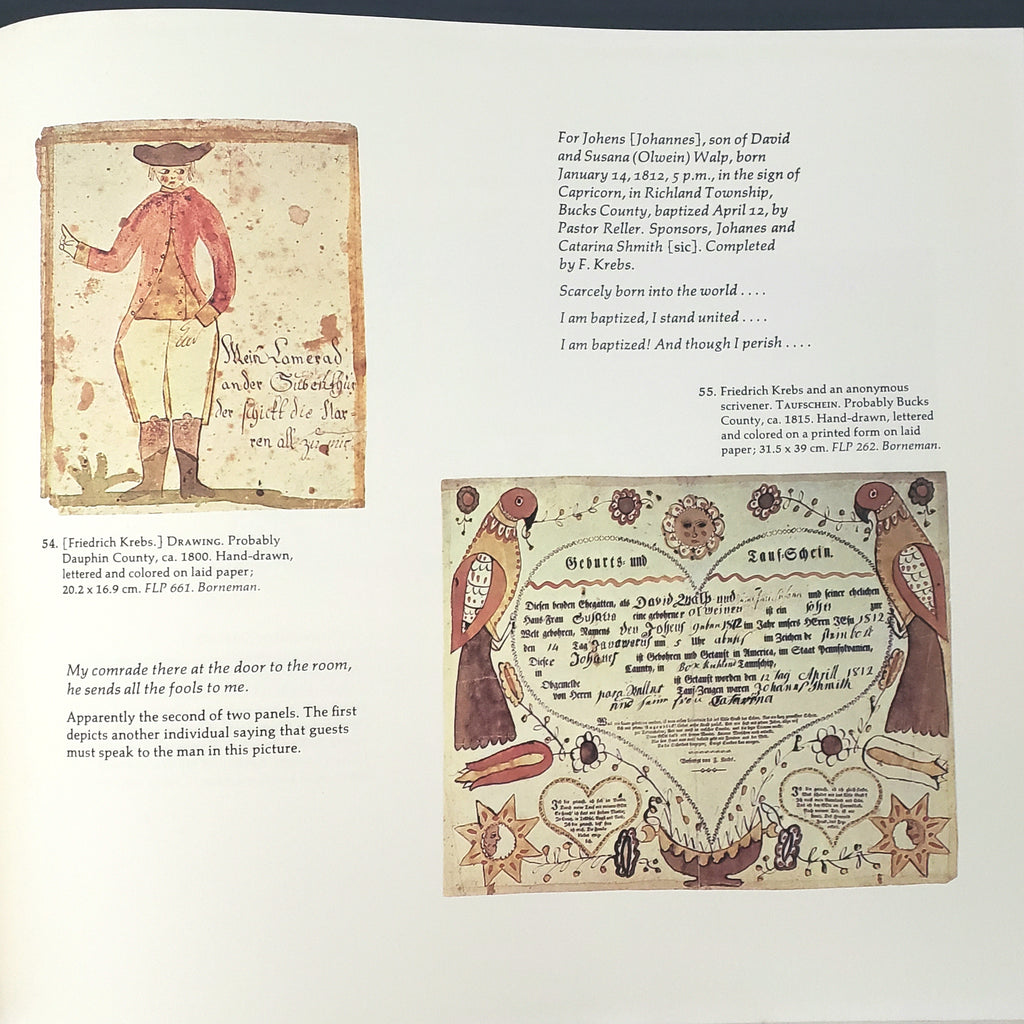 Mein Camerad
an der Stubenthür
der schickt die Nar-
ren all zu mir
54. [Friedrich Krebs.] DRAWING. Probably
Dauphin County, ca. 1800. Hand-drawn,
lettered and colored on laid paper;
20.2 x 16.9 cm. FLP 661. Borneman.
My comrade there at the door to the room,
he sends all the fools to me.
Apparently the second of two panels. The first
depicts another individual saying that guests
must speak to the man in this picture.
For Johens [Johannes], son of David
and Susana (Olwein) Walp, born
January 14, 1812, 5 p.m., in the sign of
Capricorn, in Richland Township,
Bucks County, baptized April 12, by
Pastor Reller. Sponsors, Johanes and
Catarina Shmith [sic]. Completed
by F. Krebs.
Scarcely born into the world . . . .
I am baptized, I stand united . . . .
I am baptized! And though I perish . . . .
55. Friedrich Krebs and an anonymous
scrivener. TAUFSCHEIN. Probably Bucks
County, ca. 1815. Hand-drawn, lettered
and colored on a printed form on laid
paper; 31.5 x 39 cm. FLP 262. Borneman.
Geburts- und Tauf-Schein.
Diesen beyden Ehegatten, als David Walb und seiner ehelichen
Haus-Frau Susana eine geborner olweinen ist ein sohn zur
Welt gebohren, Namens den Johens 1812 im Jahr unsers HErrn JEsu 1812
den 14 Tag Januwarius um 5 Uhr abents im Zeichen de steinbock
Diese Johans ist Gebohren und Getauft in America, im Staat Pennsylvanien,
in Caunty, in Box Richland Taunschip,
Obgemelde ist Getauft worden den 12 tag Aprill 1812
von Herrn Tauf-Zeugen waren Johanes Shmith
und seine frau Catarina
Verfertigt von F. Krebs.